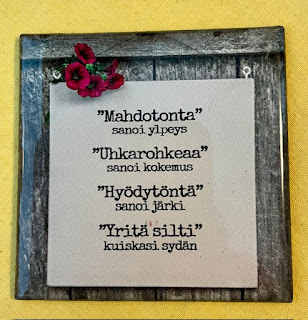 "Mahdotonta"
sanoi ylpeys
"Uhkarohkeaa"
sanoi kokemus
"Hyödytöntä"
sanoi järki
"Yritä silti"
kuiskasi sydän